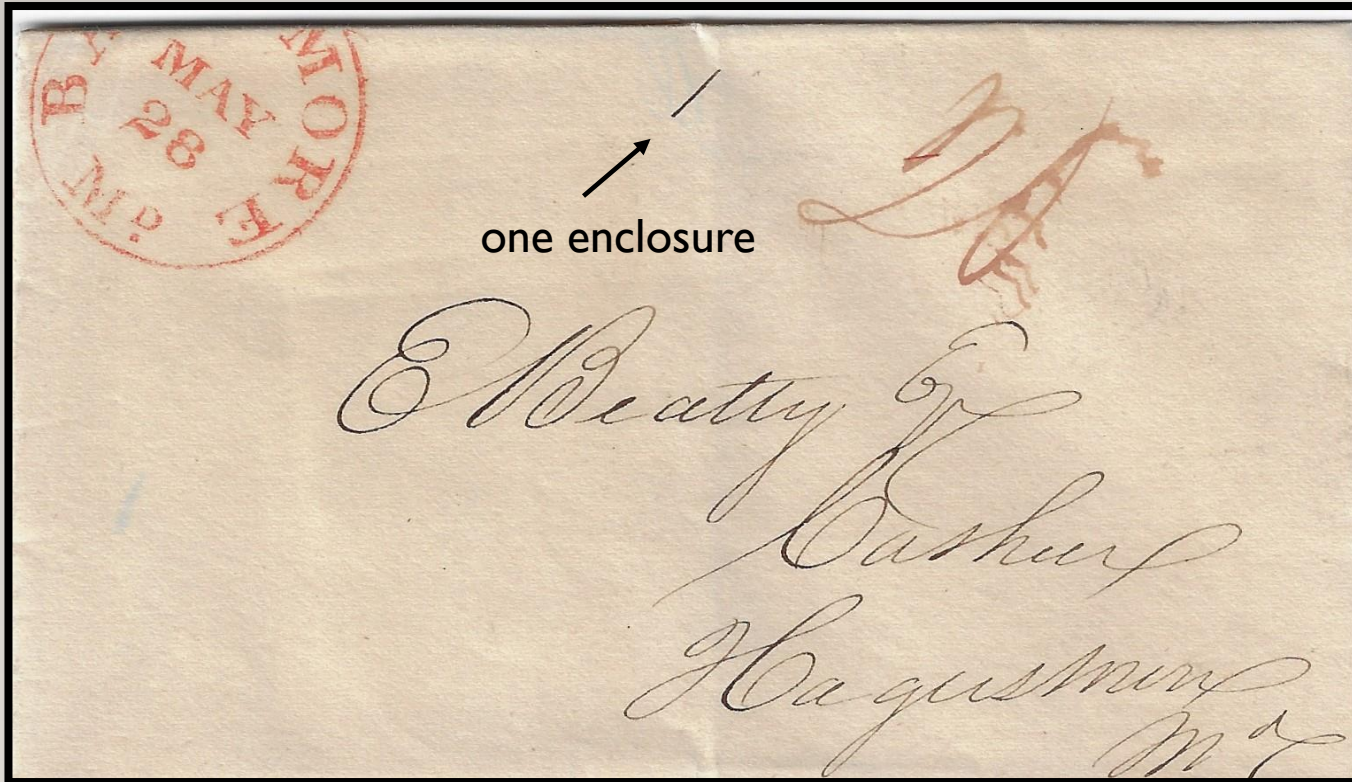 BA MORE
MAY
28
MD.
/
one enclosure
20
E Beatty Esq
Cashier
Hagerstown
Md